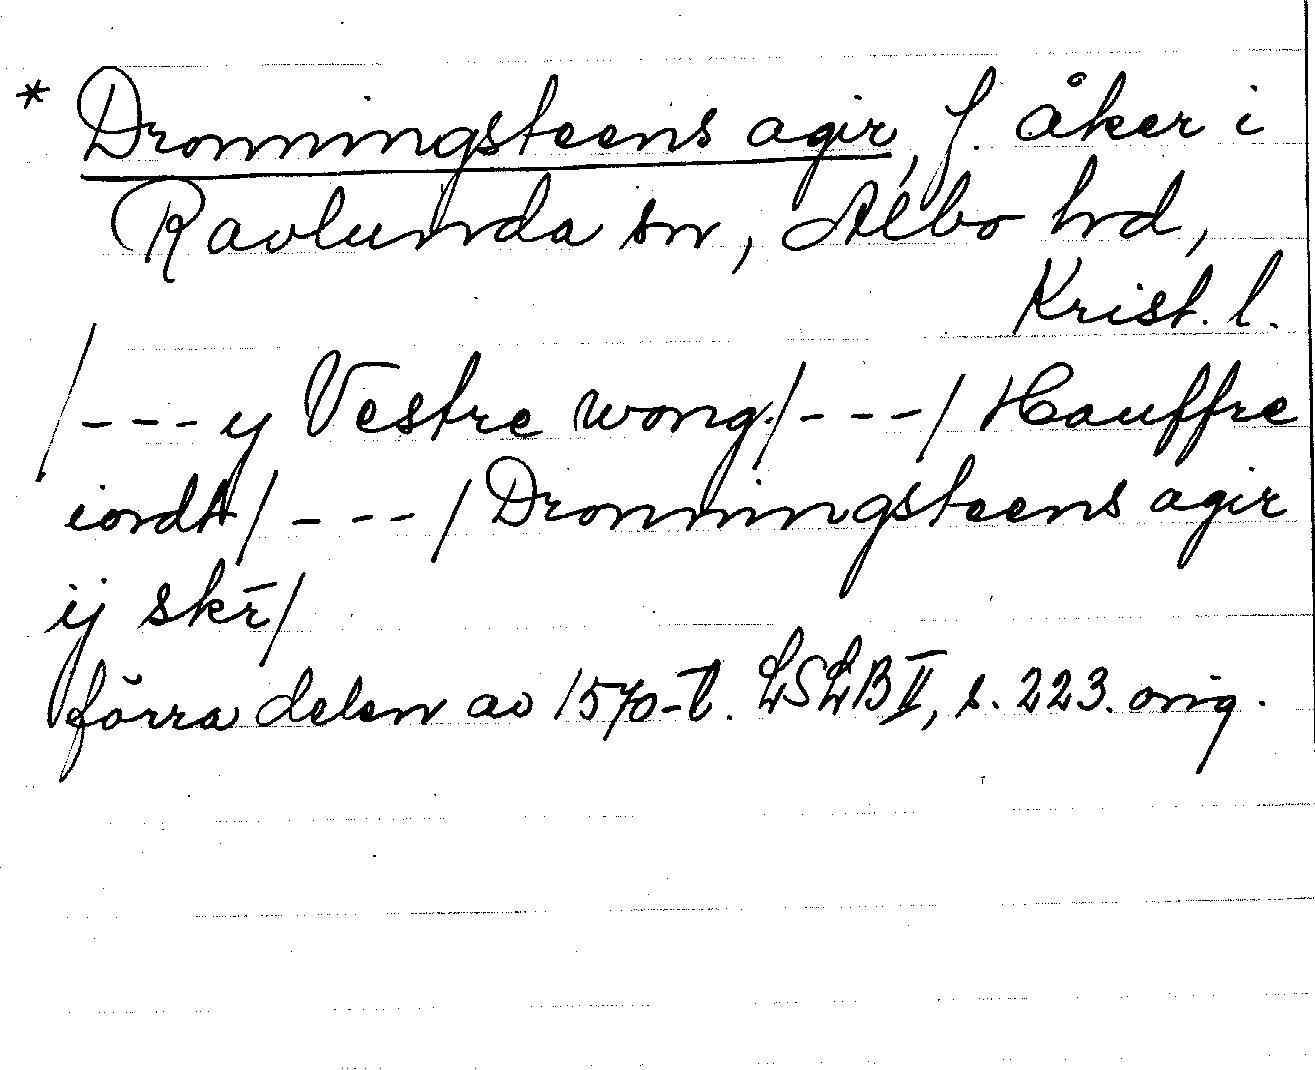 * Dronningsteens agir, f. åker i
Ravlunda sn, Albo hrd,
Krist. l.
/---y Vestre wong/---/ Hauffre
iordt/---/Dronningsteens agir
ij skr̄/
förra delen av 1570-t. LSLB II, s. 223. orig.